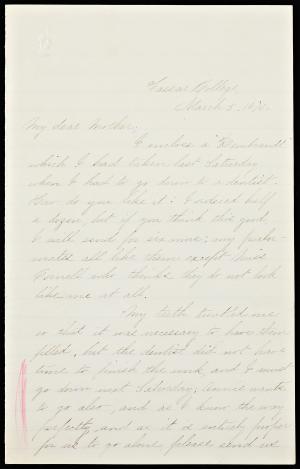 Vassar College
March 5, 187
My dear Mother,
I enclose a "Rembrandt"
which I had taken last Saturday
when I had to go down to a dentist.
How do you like it? I ordered half
a dozen, but if you think this good
I will send for six more; my parlor-
mates all like them except Miss
who thinks they do not look
like me at all.
My teeth troubled me
so that it was necessary to have them
filled, but the dentist did not have
time to finish the work, and I must
go down next Saturday; wants
to go also, and as I know the way
perfectly and as it is entirely proper
for us to go alone please send us